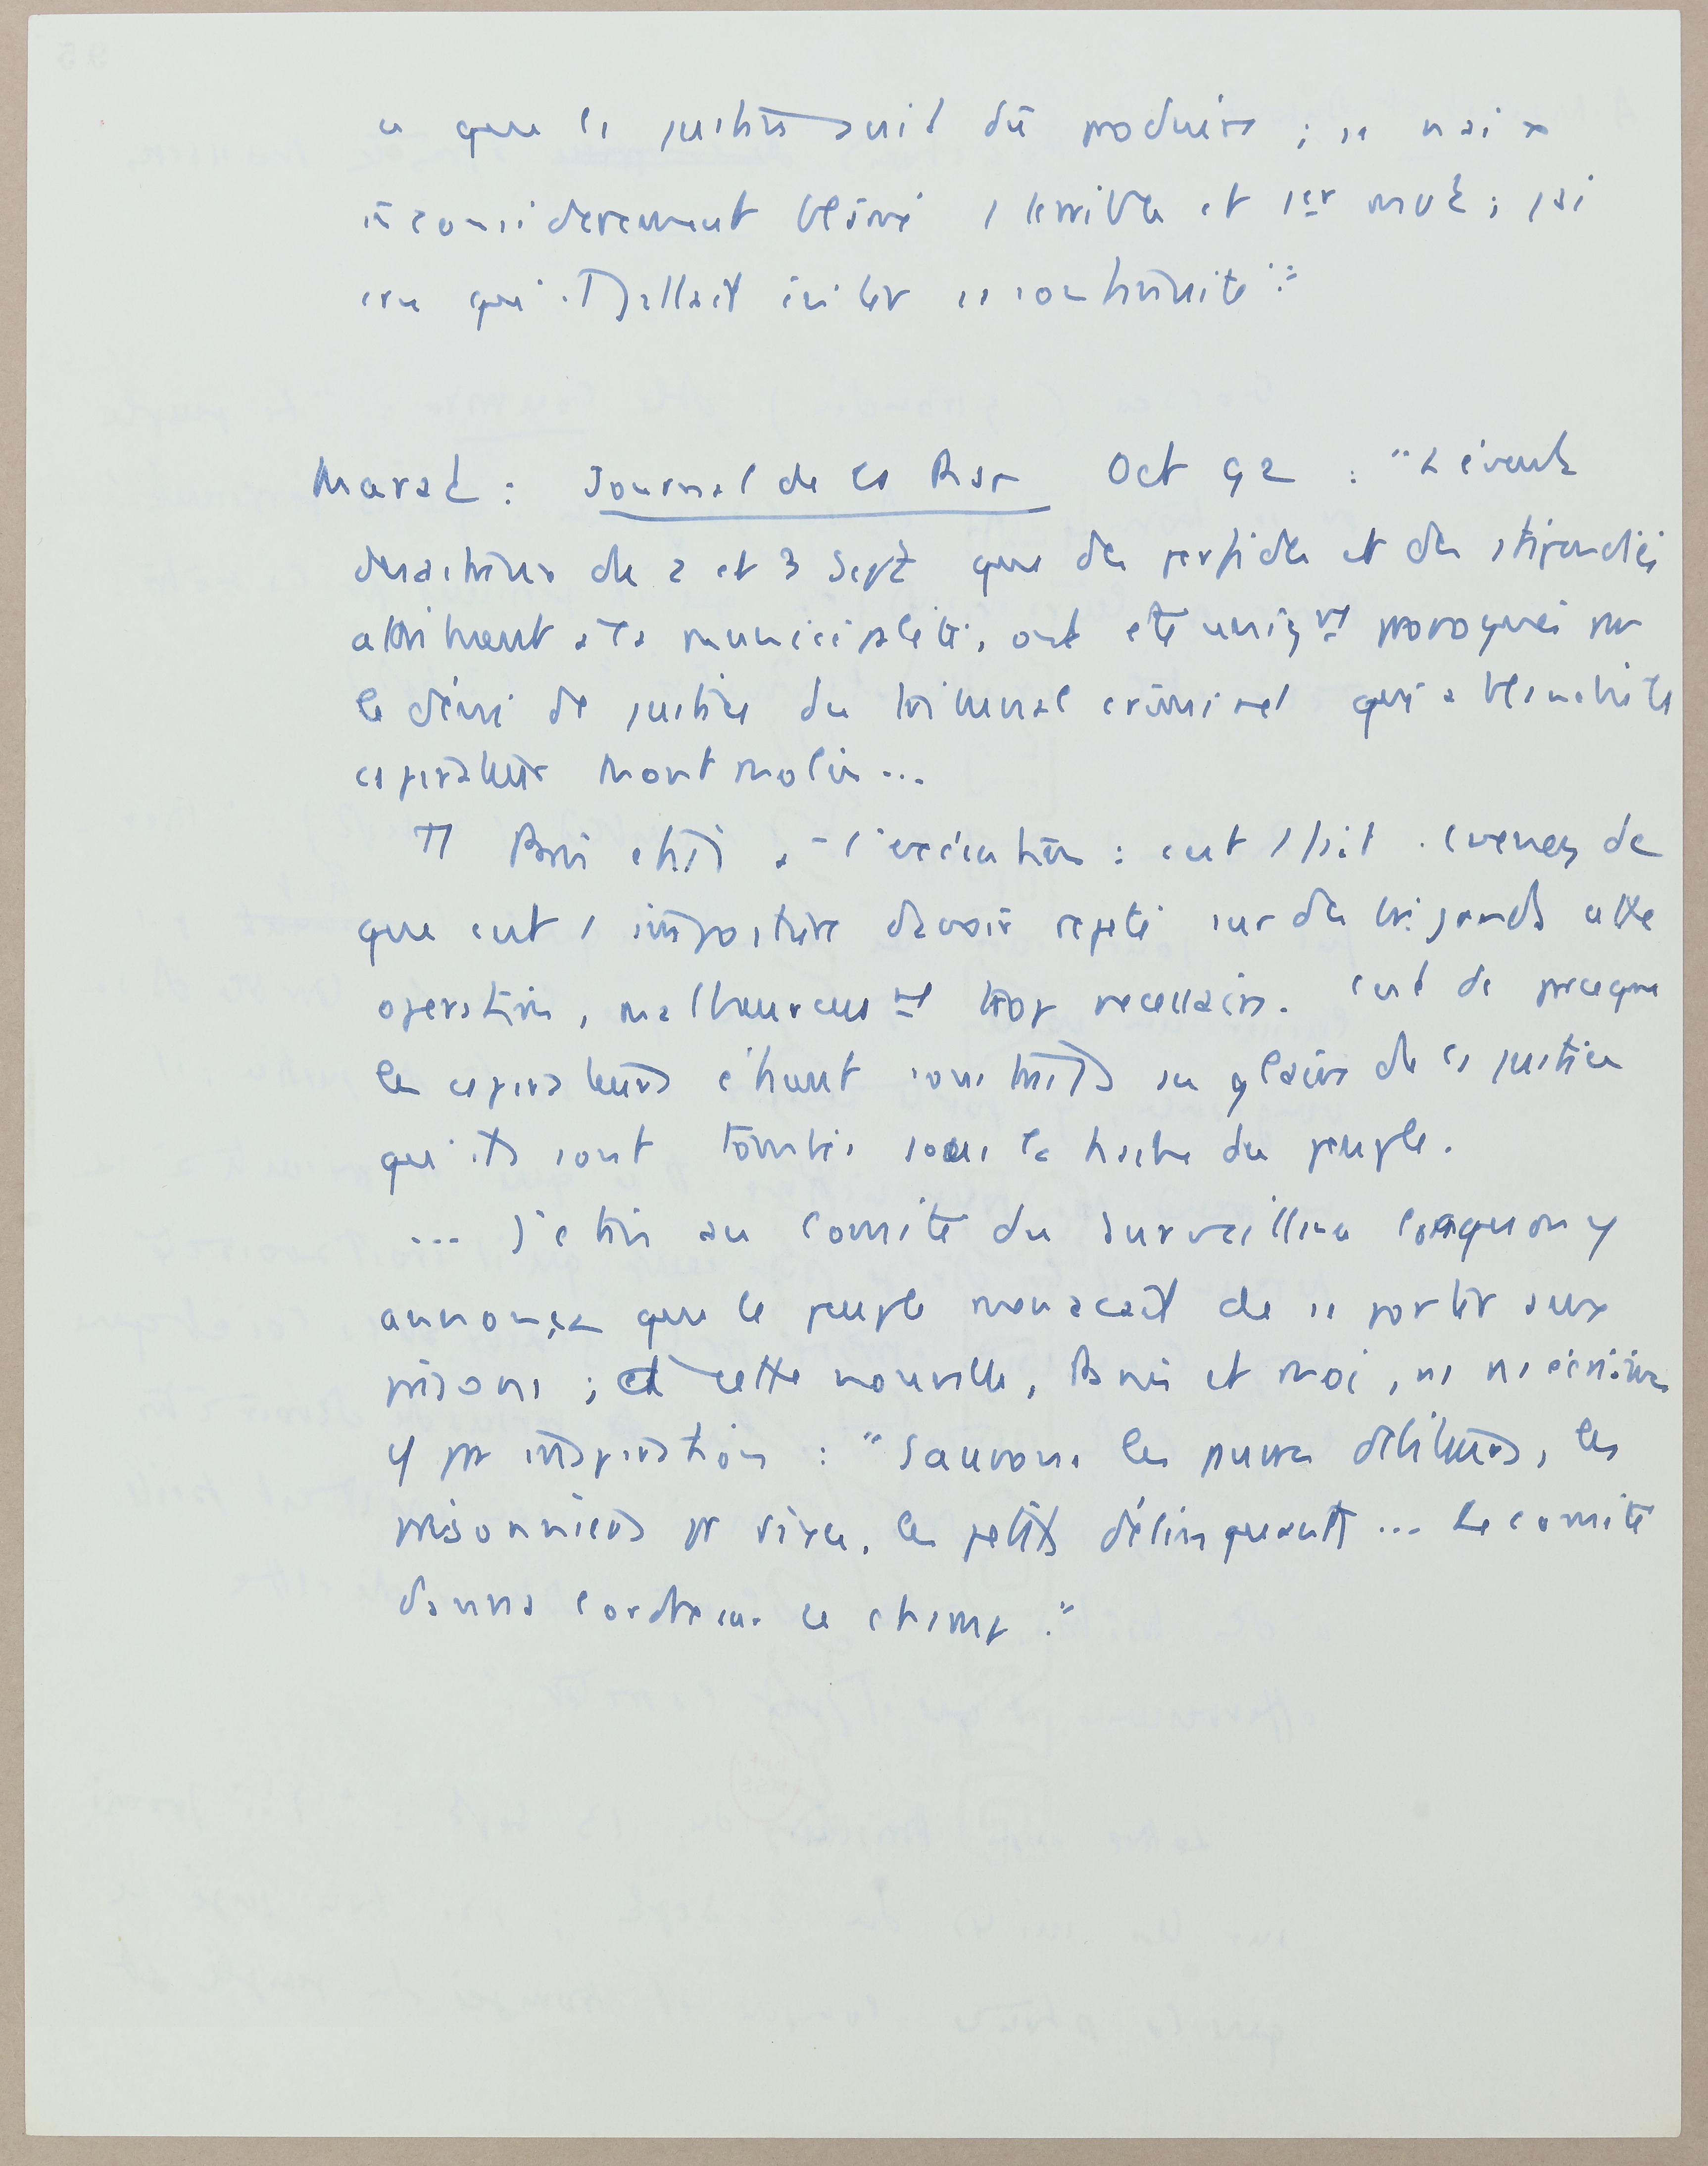 ce que la justice aurait dû produire ; je n'ai
inconsidérément blâmé 1 terrible et 1er mvt ; j'ai
cru qu'il fallait éviter sa continuité".
Marat : Journal de la Rép Oct 92 : "Les évents
désastreux de 2 et 3 Sept que des perfides et des stipendiés
attribuent à la municipalité, ont été uniqvt provoqués par
le déni de justice du tribunal criminel qui a blanchi le
conspirateur Montmolin ...
Paris était à l'exécution :
que c'est 1 imposture d'avoir rejeté sur des brigands cette
opération, malheureusmt trop nécessaire. C'est de ce que
les conspirateurs étaient soustraits au glaive de la justice
qu'ils sont tombés sous la hache du peuple.
... J'étais au Comité du Surveillance lorsqu'on y
annonça que le peuple menaçait de se porter aux
prisons ; et cette nouvelle, Panis et moi, ns ns écriâmes
par inspiration : "Sauvons les pauvres débiteurs, les
prisonniers pr rixe, les petits délinquants ... Le comité
donna l'ordre sur le champ."